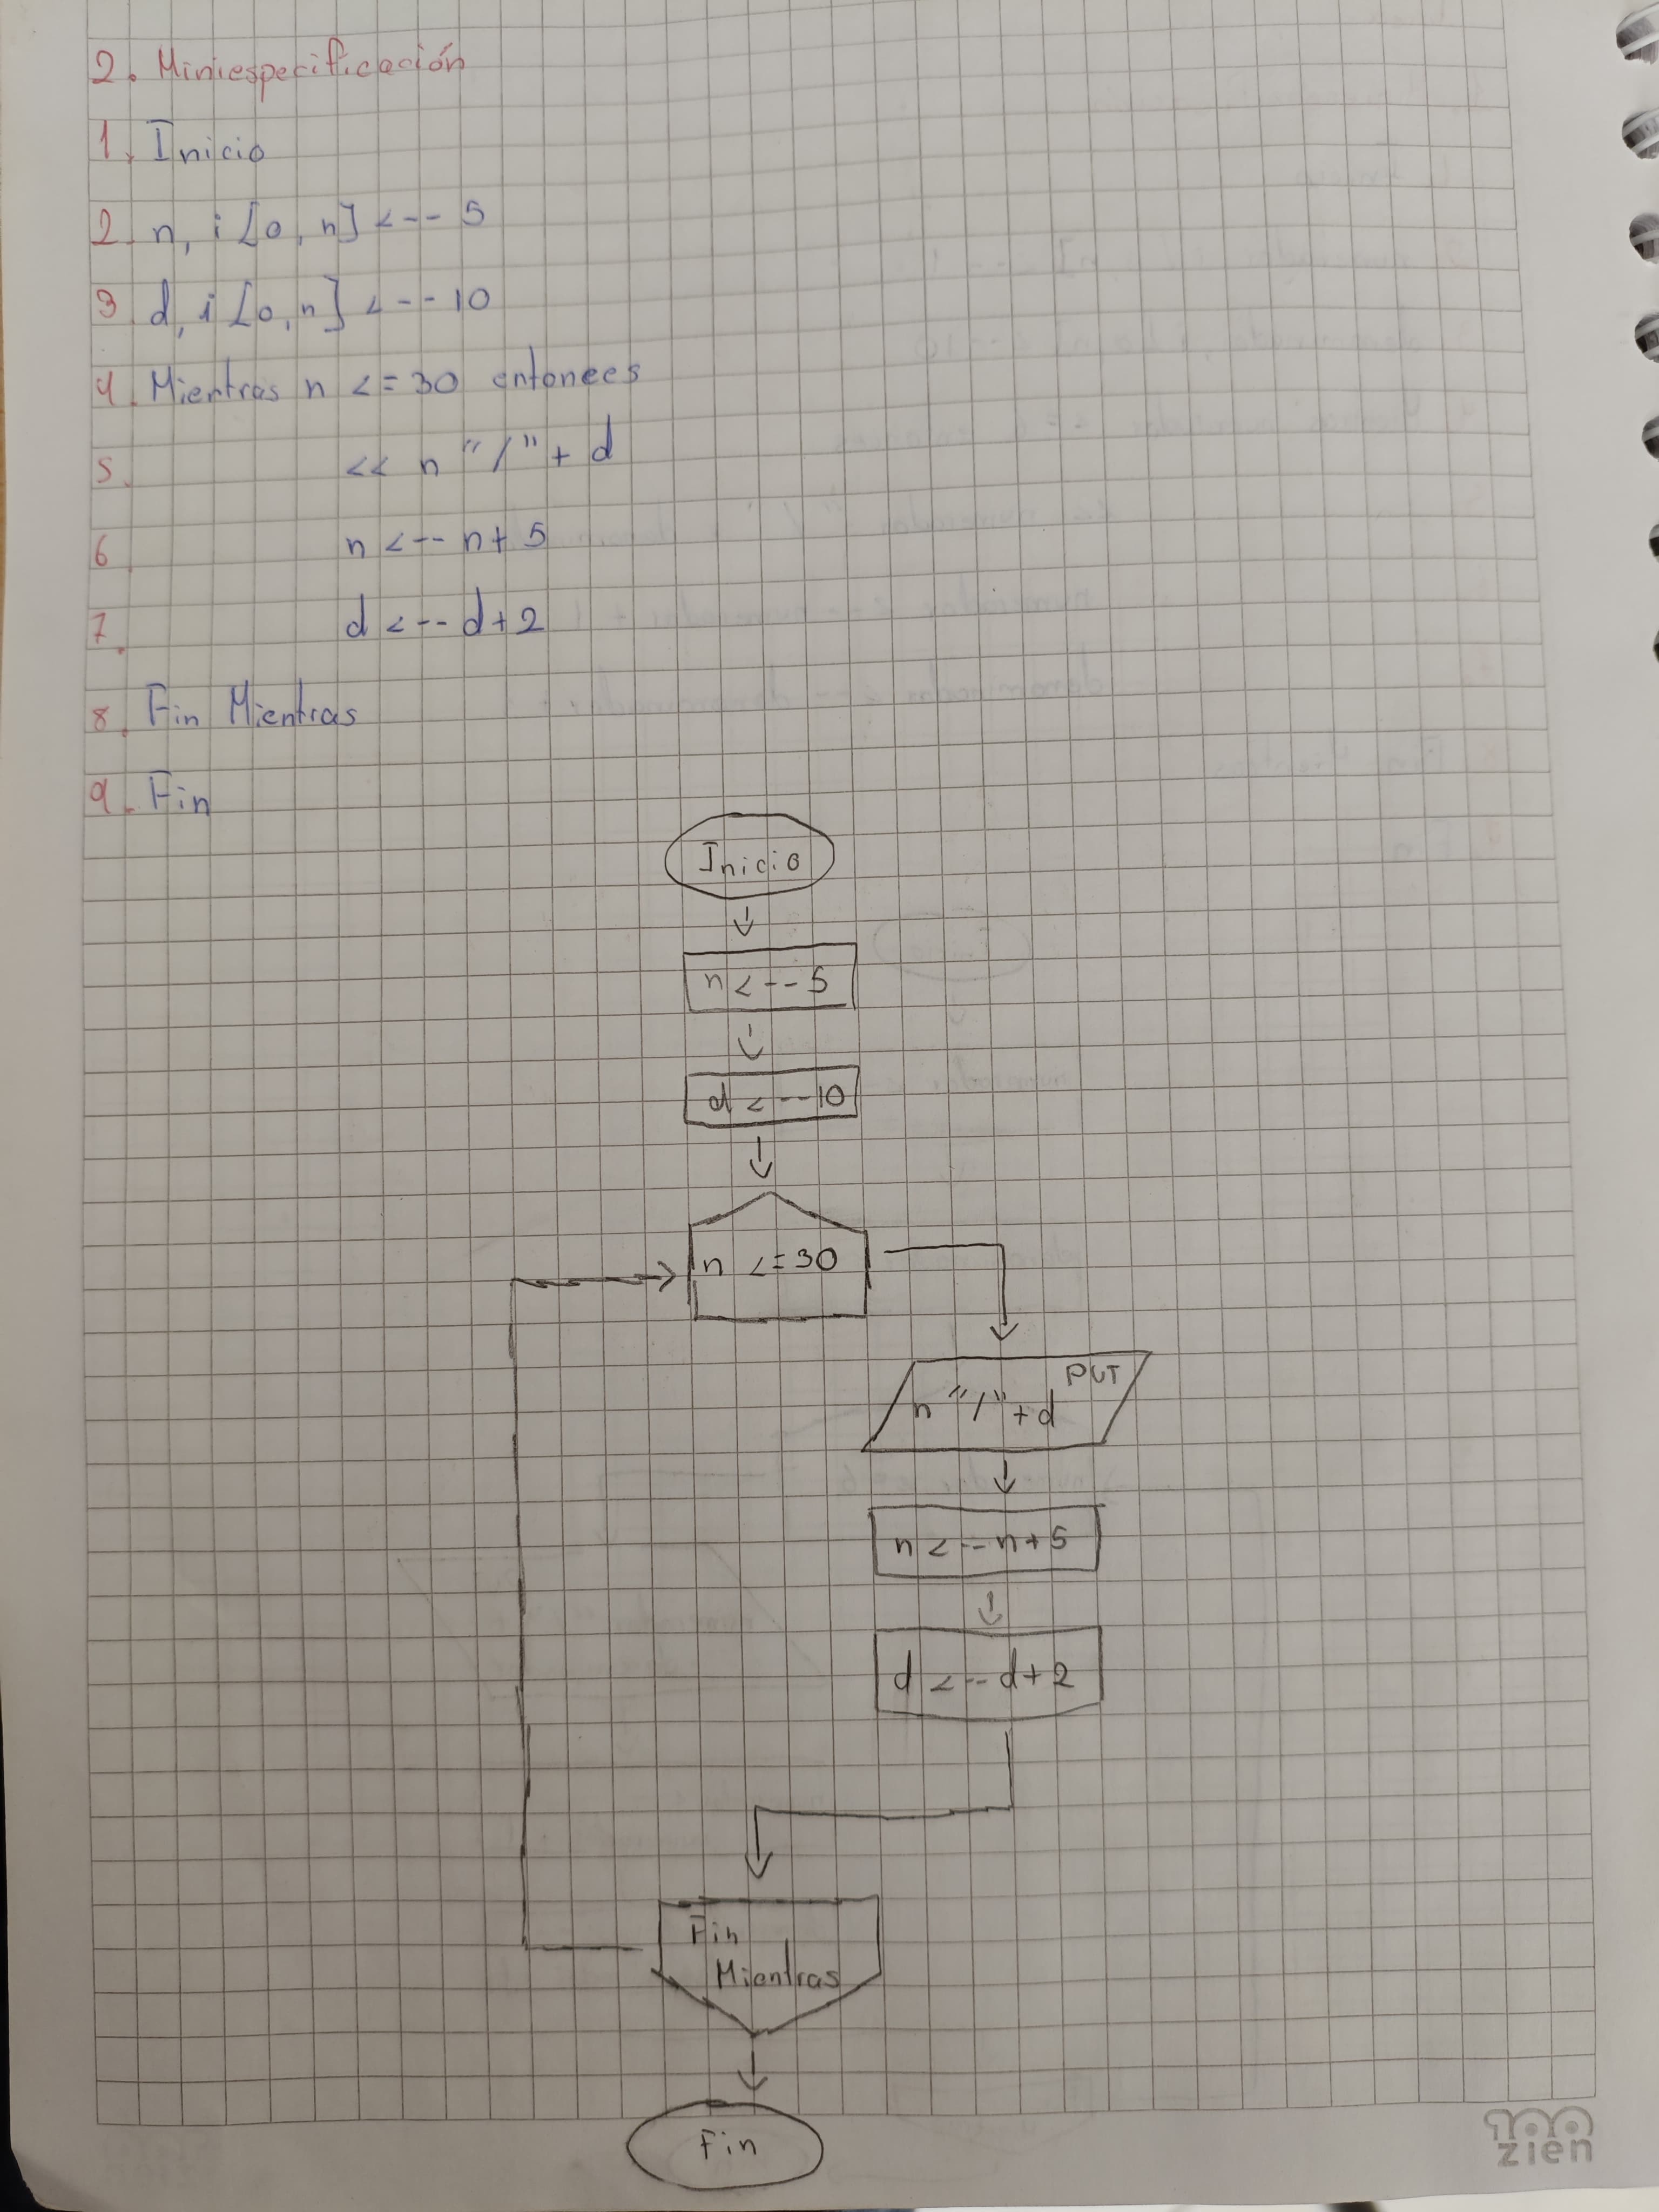 2. Miniespecificación
1. Inicio
2. n, i [0, n] <-- 5
3. d, i [0, n] <-- 10
4. Mientras n <= 30 entonces
5. << n "/" + d
6 n <-- n + 5
7. d <-- d + 2
8. Fin Mientras
9. Fin
Inicio
n <-- 5
d <-- 10
n <= 30
PUT
n "/" + d
n <-- n + 5
d <-- d + 2
Fin
Mientras
Fin
100
zien